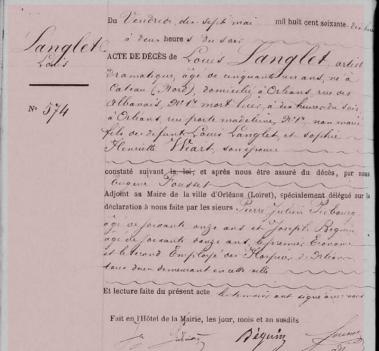 Du Vendredi dix sept mai mil huit cent soixante
à deux heures du soir
Langlet
Louis
ACTE DE DÉCÈS de Louis Langlet, artiste
dramatique, âgé de cinquante un ans, né à
Cateau (Nord), domicilié à Orléans, rue des
Albanais, mort hier, à dix heures du soir
No 574
à Orléans, rue porte madeleine, non marié
fils de defunts Louis Langlet, et Sophie
Henriette Wiart, son épouse
constaté suivant la loi, et après nous être assuré du décès, par nous
Eugène Fousset
Adjoint au Maire de la ville d'Orléans (Loiret), spécialement délégué sur la
déclaration à nous faite par les sieurs Pierre Julien
âgé de soixante onze ans et Joseph Béguin
âgé de soixante ans, le premier Econome
et le second Employé des Hospices d'Orléans
tous deux demeurant en cette ville
Et lecture faite du présent acte les témoins ont signé avec nous
Fait en l'Hôtel de la Mairie, les jour, mois et an susdits
Béguin